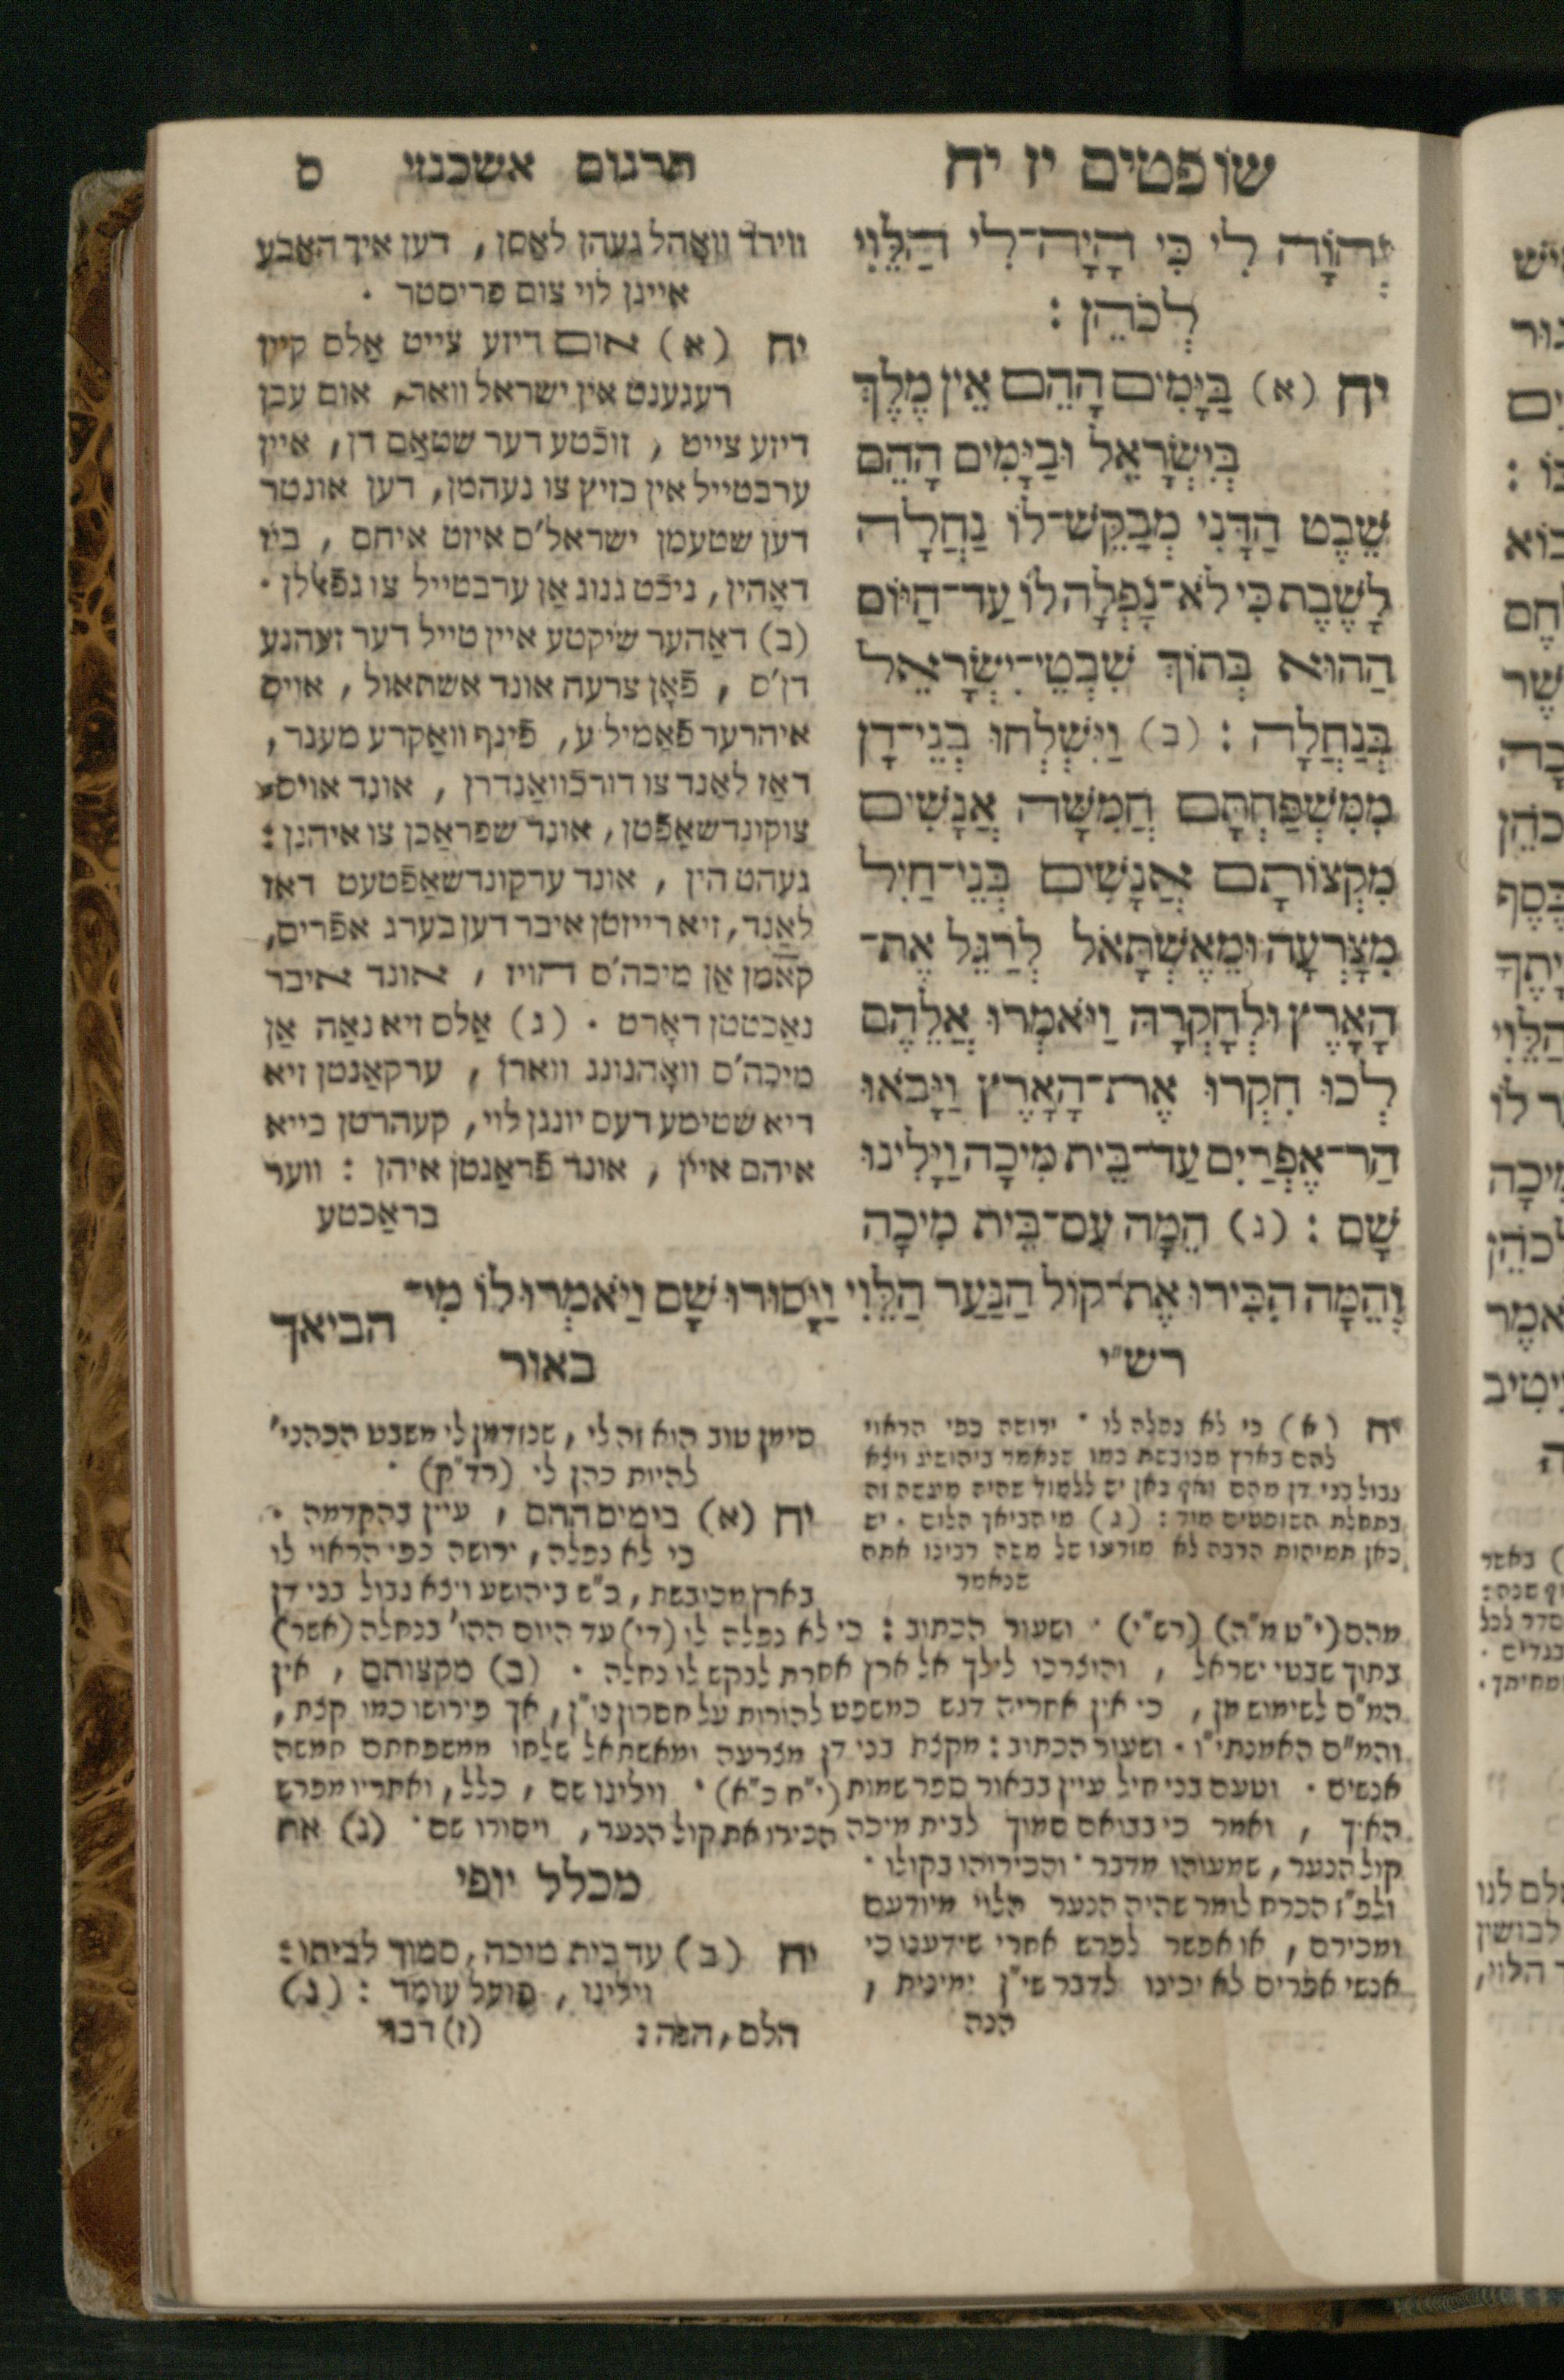 שופטים יז יח
יְהוָֹה לִי כִּי הָיָה־לִי הַלֵּוִי
לְכֹהֵן :
יח (א) בַּיָּמִים הָהֵם אֵין מֶלֶךְ
בְּיִשְׂרָאֵל וּבַיָּמִים הָהֵם
שֵׁבֶט הַדָּנִי מְבַקֶּשׁ־לוֹ נַחֲלָה
לָשֶׁבֶת כִּי לֹא־נָפְלָה לּוֹ עַד־הַיּוֹם
הַהוּא בְּתוֹךְ שִׁבְטֵי־יִשְׂרָאֵל
בְּנַחֲלָה : (ב) וַיִּשְׁלְחוּ בְנֵי־דָן
מִמִּשְׁפַּחְתָּם חֲמִשָּׁה אֲנָשִׁים
מִקְצוֹתָם אֲנָשִׁים בְּנֵי־חַיִל
מִצָּרְעָה וּמֵאֶשְׁתָּאֹל לְרַגֵּל אֶת־
הָאָרֶץ וּלְחָקְרָהּ וַיֹּאמְרוּ אֲלֵהֶם
לְכוּ חִקְרוּ אֶת־הָאָרֶץ וַיָּבֹאוּ
הַר־אֶפְרַיִם עַד־בֵּית מִיכָה וַיָּלִינוּ
שָׁם : (ג) הֵמָּה עִם־בֵּית מִיכָה
וְהֵמָּה הִכִּירוּ אֶת־קוֹל הַנַּעַר הַלֵּוִי וַיָּסוּרוּ שָׁם וַיֹּאמְרוּ לוֹ מִי־
הביאך
תרגום אשכנזי ס
ווירד וואָהל געהן לאַסן , דען איך האַבע
איינן לוי צום פריסטר .
יח (א) אום דיזע צייט אַלס קיין
רעגענט אין ישראל וואר, אום עבן
דיזע צייט , זוכֿטע דער שטאַם דן, איין
ערבטייל אין בזיץ צו נעהמן, דען אונטר
דען שטעמן ישראל'ס איזט איהם , ביז
דאָהין, ניכֿט גנוג אַן ערבטייל צו גפֿאלן .
(ב) דאַהער שיקטע איין טייל דער זאהנע
דן'ס , פֿאָן צרעה אונד אשתאול , אויס
איהרער פֿאַמיליע, פֿינף וואַקרע מענר,
דאַז לאַנד צו דורכֿוואַנדרן , אונד אויס
צוקונדשאַפֿטן, אונד שפראַכן צו איהנן :
געהט הין , אונד ערקונדשאַפֿטעט דאז
לאַנד, זיא רייזטן איבר דען בערג אפרים,
קאמן אַן מיכה'ס הויז , אונד איבר
נאַכטטן דאָרט . (ג) אַלס זיא נאַה אַן
מיכה'ס וואָהנונג ווארן , ערקאַנטן זיא
דיא שטימע דעס יונגן לוי, קעהרטן בייא
איהם איין , אונד פֿראַגטן איהן : ווער
בראַכטע
רש"י
יח (א) כי לא נפלה לו . ירושה כפי הראוי
להם בארץ מכובשת כמו שנאמר ביהושע ויצא
גבול בני דן מהם ואף כאן יש ללמוד שהיה מעשה זה
בתחלת השופטים מיד : (ג) מי הביאך הלום . יש
כאן תמיהות הרבה לא מזרעו של משה רבינו אתה
שנאמר
באור
סימן טוב הוא זה לי, שנזדמן לי משבט הכהני'
להיות כהן לי (רד"ק) .
יח (א) בימים ההם , עיין בהקדמה .
כי לא נפלה, ירושה כפי הראוי לו
בארץ מכובשת, כ"ש ביהושע ויצא גבול בני דן
מהם (י"ט מ"ה) (רש"י) . ושעור הכתוב : כי לא נפלה לו (די) עד היום ההו' בנחלה (אשר)
בתוך שבטי ישראל , והוצרכו לילך אל ארץ אחרת לבקש לו נחלה . (ב) מקצותם , אין
המ"ם לשימוש מן, כי אין אחריה דגש כמשפט להורות על חסרון נו"ן, אך פירושו כמו קצת,
והמ"ם האמנתי"ו . ושעור הכתוב : מקצת בני דן מצרעה ומאשתאל שלחו ממשפחתם חמשה
אנשים . וטעם בני חיל עיין בבאור ספר שמות (י"ח כ"א) . וילינו שם , כלל, ואחריו מפרש
האיך , ואמר כי בבואם סמוך לבית מיכה הכירו את קול הנער, ויסורו שם . (ג) את
קול הנער, שמעוהו מדבר . והכירוהו בקולו .
ולפ"ז הכרח לומר שהיה הנער הלוי מיודעם
ומכירם, או אפשר לפרש אחרי שידענו כי
אנשי אפרים לא יכינו לדבר שי"ן ימינית ,
הנה
מכלל יופי
יח (ב) עד בית מיכה, סמוך לביתו :
וילינו , פועל עומד : (ג)
הלם, הנה : (ז) דבר